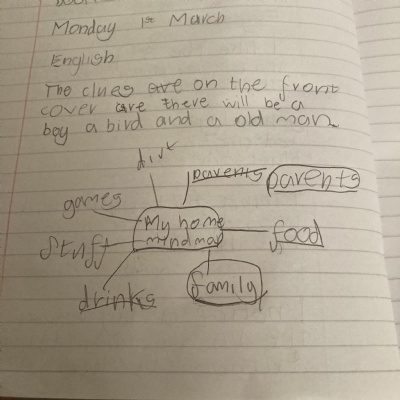 Monday 1st March
English
The clues are on the front
cover are there will be a
boy a bird and a old man
dirt
parents parents
games
My home
mindmap
stuff
food
drinks
family